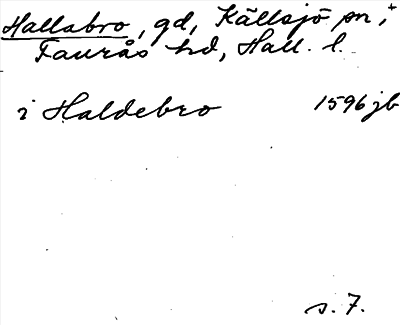 Hallabro, gd, Källsjö sn, +
Faurås hd, Hall. l.
i Haldebro 1596 jb
s. 7.